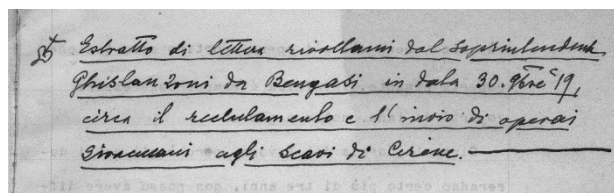 Estratto di lettera rivoltami dal soprintendente
Ghislanzoni da Bengasi in data 30. 9bre 19,
circa il reclutamento e l'invio di operai
siracusani agli scavi di Cirene.
reranno certo più di tre anni, non posso avere dif-